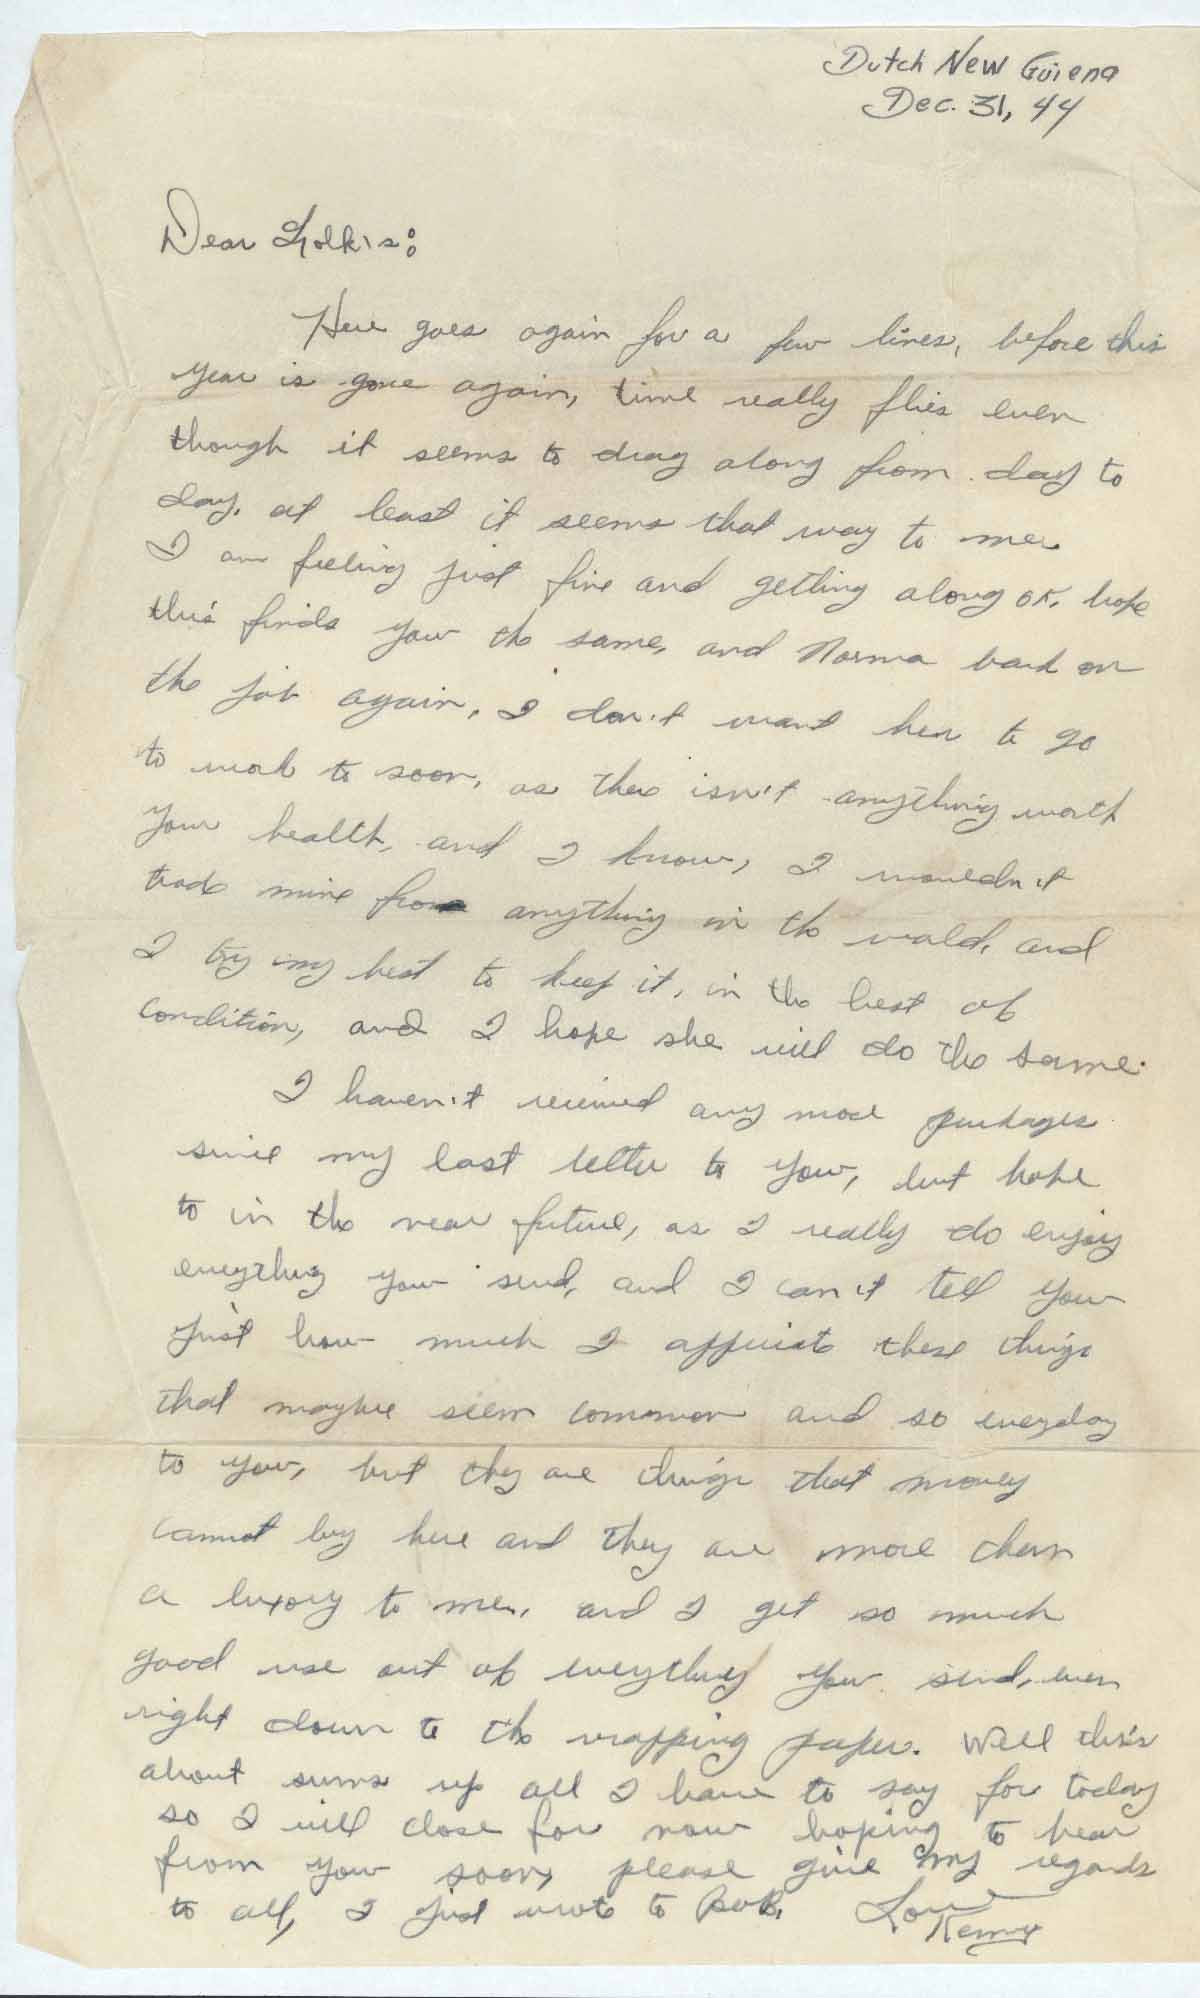 Dutch New Guiena
Dec. 31, 44
Dear Folk's:
Here goes again for a few lines, before this
year is gone again, time really flies even
though it seems to drag along from day to
day, at least it seems that way to me.
I am feeling just fine and getting along OK, hope
this finds you the same, and Norma back on
the job again, I don't want her to go
to work to soon, as there isn't anything worth
your health, and I know, I wouldn't
trade mine for anything in the world, and
I try my best to keep it, in the best of
condition, and I hope she will do the same.
I haven't received any more packages
since my last letter to you, but hope
to in the near future, as I really do enjoy
everything you send, and I can't tell you
just how much I appriciate these things
that maybe seem common and so everyday
to you, but they are things that money
cannot buy here and they are more than
a luxory to me, and I get so much
good use out of everything you send, even
right down to the wrapping paper. Well this
about sums up all I have to say for today
so I will close for now hoping to hear
from you soon, please give my regards
to all, I just wrote to Bob. Love